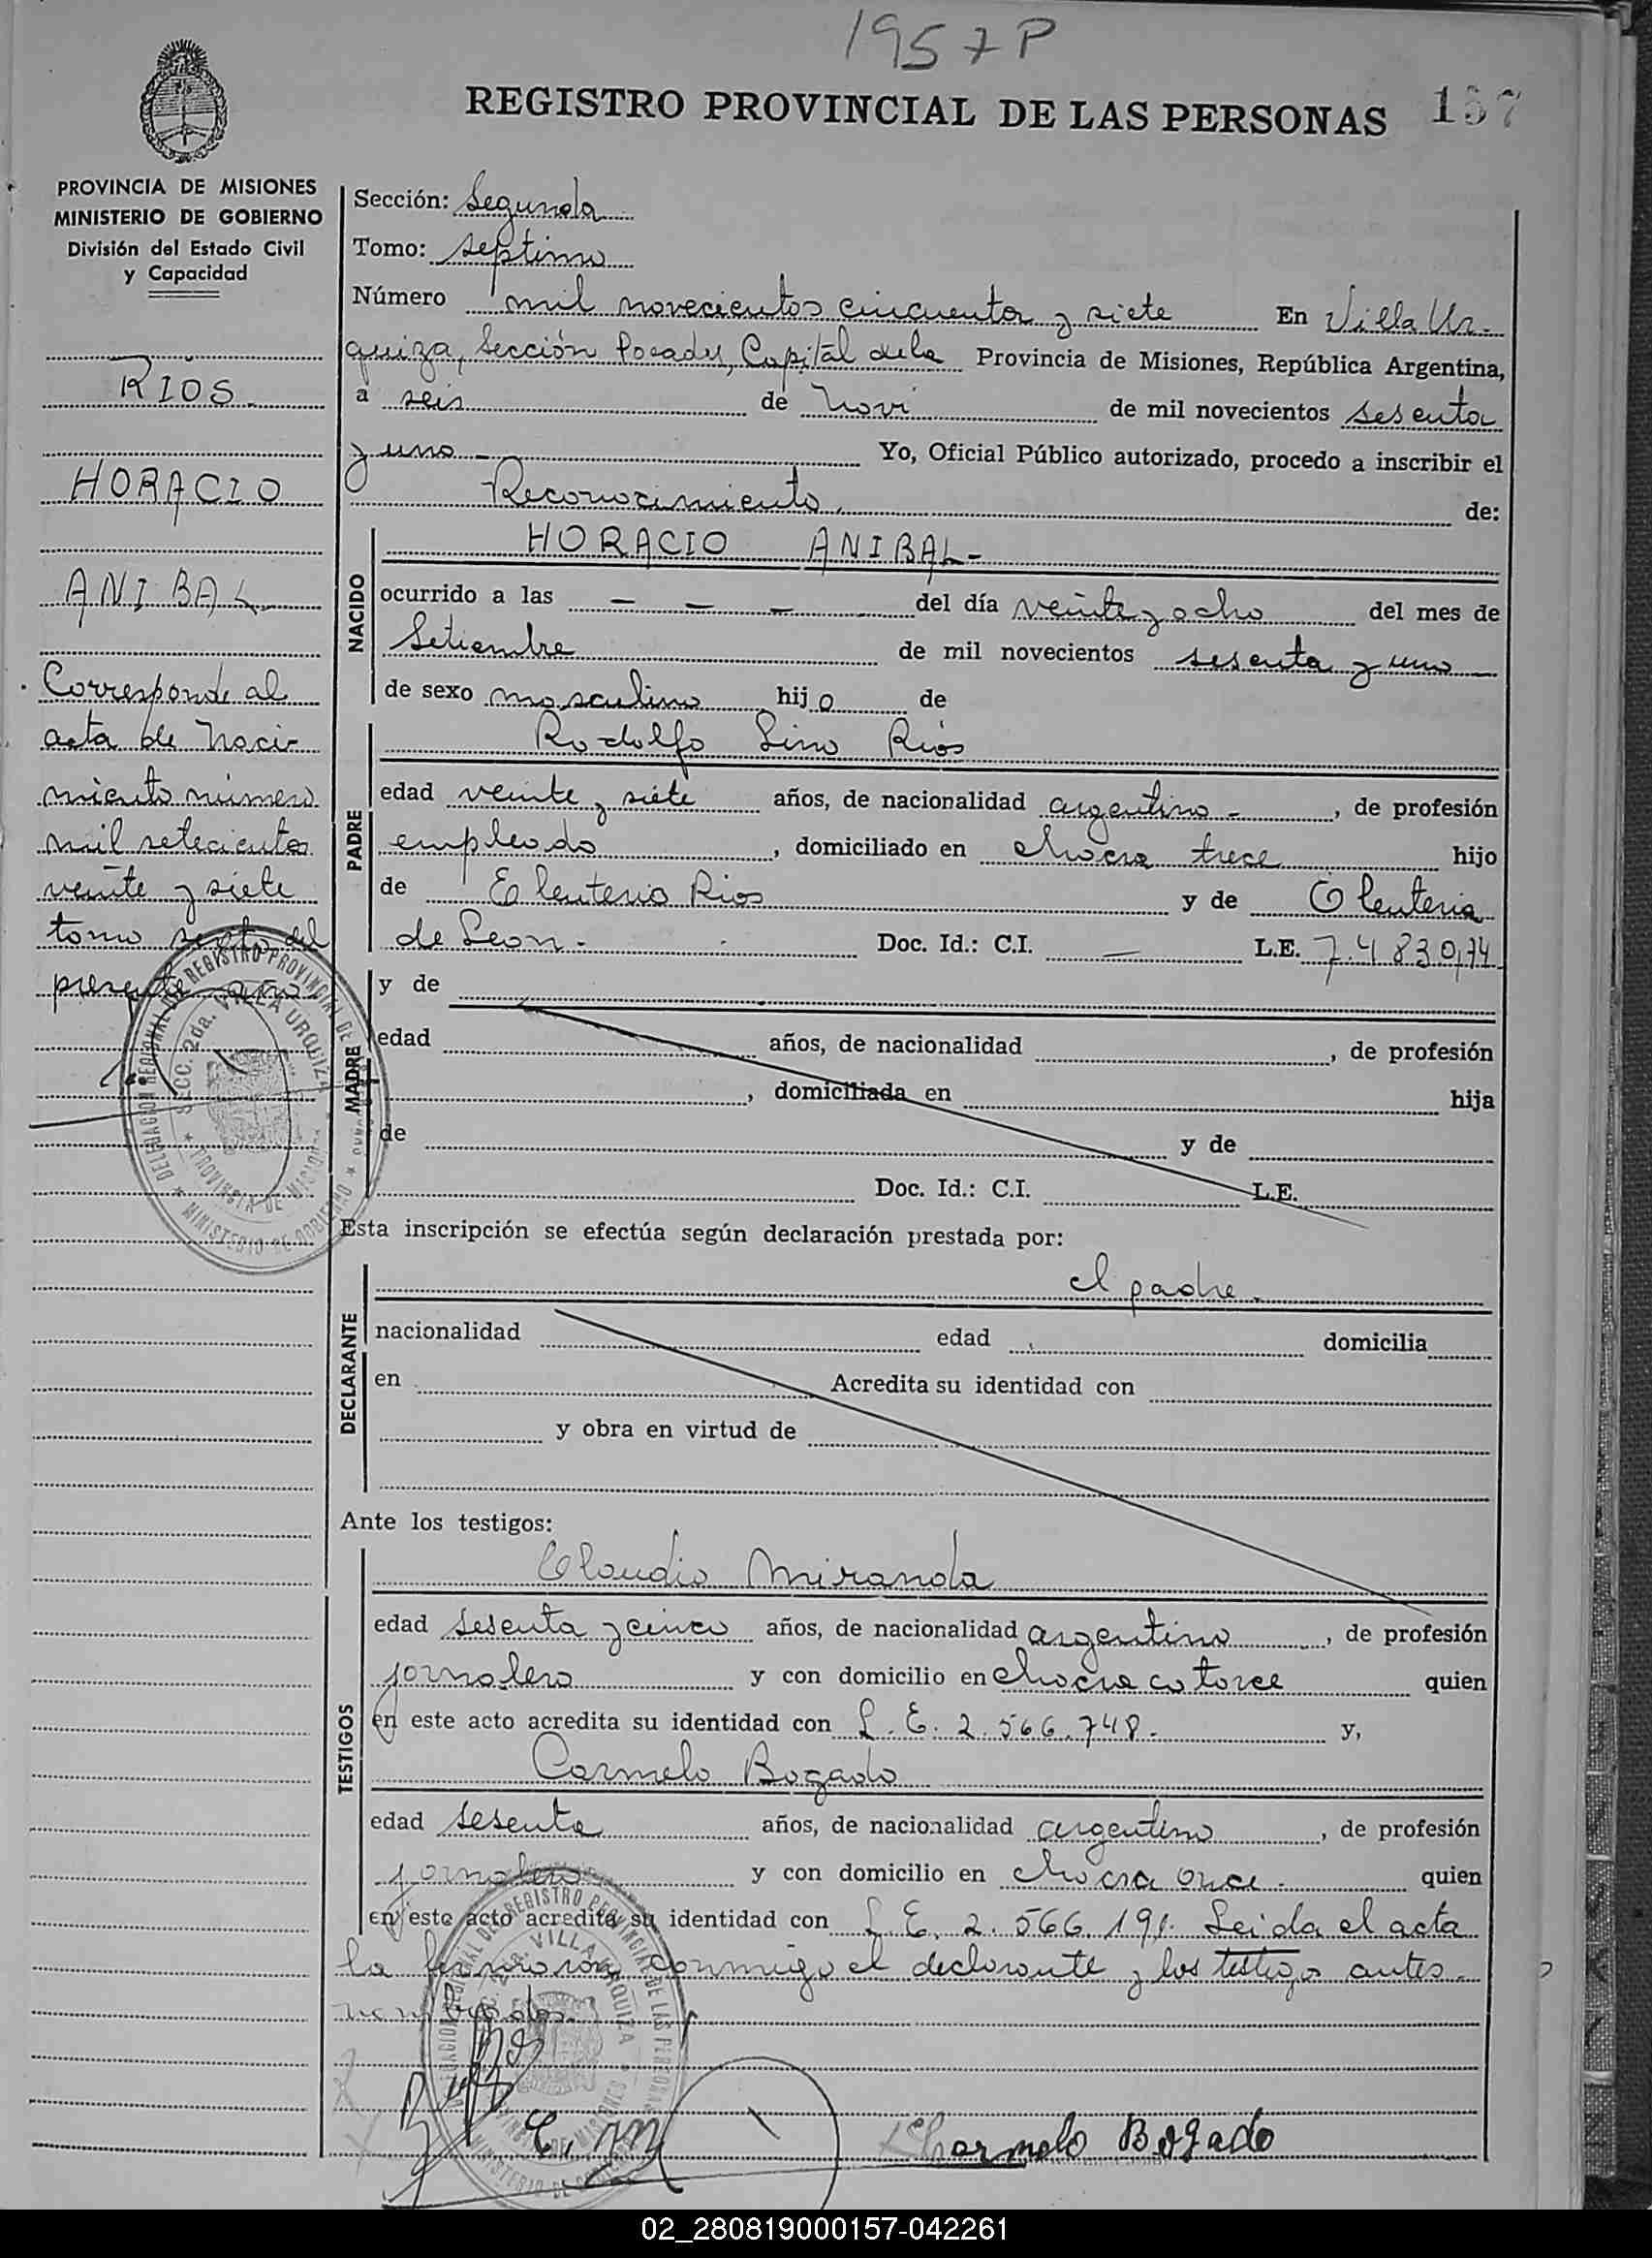 1957 P
REGISTRO PROVINCIAL DE LAS PERSONAS 157
PROVINCIA DE MISIONES
MINISTERIO DE GOBIERNO
División del Estado Civil
y Capacidad
RIOS.
HORACIO
ANIBAL
Corresponde al
acta de Naci-
miento número
mil setecientos
veinte y siete
tomo sexto del
presente año
Sección: Segunda
Tomo: septimo
Número mil novecientos cincuenta y siete En Villa Ur-
quiza, Sección Posadas, Capital de la Provincia de Misiones, República Argentina,
a seis de Novi de mil novecientos sesenta
y uno - Yo, Oficial Público autorizado, procedo a inscribir el
Reconocimiento, de:
NACIDO
HORACIO ANIBAL-
ocurrido a las — — — del día veinte y ocho del mes de
Setiembre de mil novecientos sesenta y uno
de sexo masculino hijo de
PADRE
Rodolfo Lino Rios
edad veinte y siete años, de nacionalidad argentino -, de profesión
empleado, domiciliado en chacra trece hijo
de Eleuterio Rios y de Eleuteria
de Leon. Doc. Id.: C.I. — L.E. 7.483.074
MADRE
y de
edad años, de nacionalidad , de profesión
, domiciliada en hija
de y de
Doc. Id.: C.I. L.E.
Esta inscripción se efectúa según declaración prestada por:
DECLARANTE
el padre.
nacionalidad edad domicilia
en Acredita su identidad con
y obra en virtud de
Ante los testigos:
TESTIGOS
Claudio Miranda
edad sesenta y cinco años, de nacionalidad argentino, de profesión
jornalero y con domicilio en chacra catorce quien
en este acto acredita su identidad con L.E. 2.566.748.- y,
Carmelo Bogado
edad sesenta años, de nacionalidad argentino, de profesión
jornalero y con domicilio en chacra once. quien
en este acto acredita su identidad con L.E. 2.566.191. Leida el acta
la firmaron conmigo el declarante y los testigos antes
nombrados.
DELEGACION REGIONAL DEL REGISTRO PROVINCIAL DE LAS PERSONAS
SECC. 2da. VILLA URQUIZA
PROVINCIA DE MISIONES
MINISTERIO DE GOBIERNO
C. M
Charmelo Bogado
02_280819000157-042261